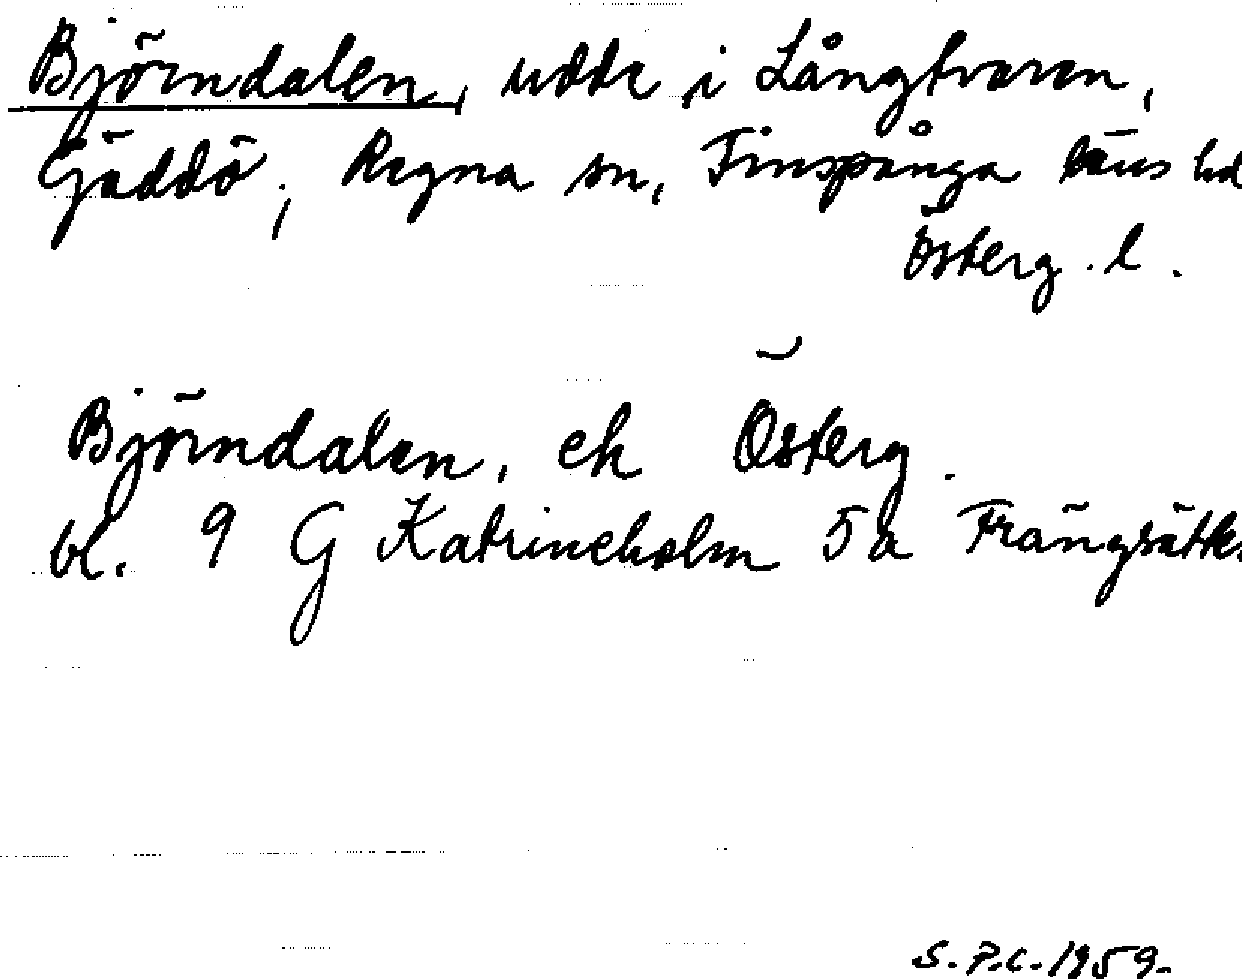 Björndalen, udde i Långtvaran,
Gäddö, Regna sn, Finspånga läns hd
Österg. l.
Björndalen, ek Österg.
bl. 9 G Katrineholm 5a Frängsätter
S.P.C. 1959.